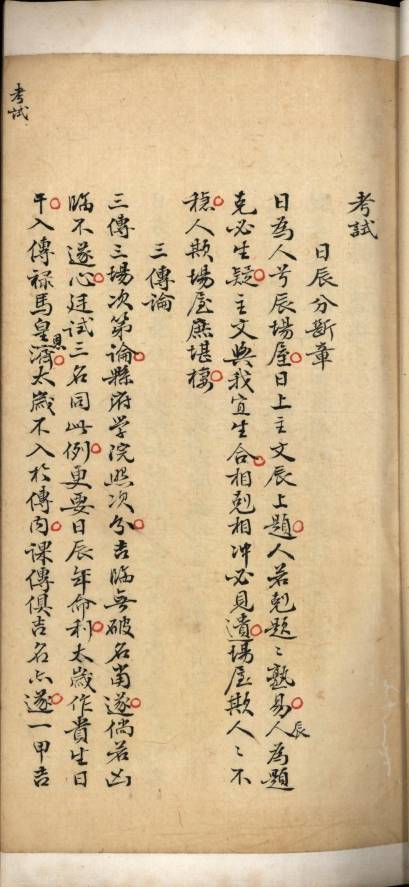 考試
日辰分斷章
日為人兮辰場屋日上主文辰上題人若剋題題熟易人為題
辰
克必生疑主文與我宜生合相剋相冲必見遺場屋欺人人不
穏人欺場屋庶堪棲
三傳論
三傳三場次第論縣府学院照次分吉臨無破名當遂倘若凶
臨不遂心廷試三名同此例更要日辰年命利太歲作貴生日
干入傳禄馬皇濟太歲不入於傳内課傳俱吉名亦遂一甲吉
恩
考試